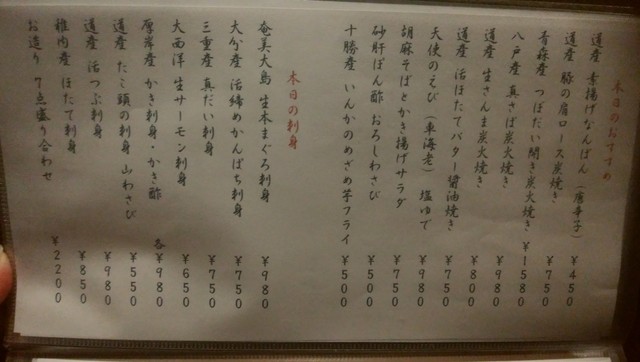 本日のおすすめ
道産 素揚げなんばん（唐辛子） ¥450
道産 豚の肩ロース炭焼き ¥750
青森産 つぼだい開き炭火焼き ¥1580
八戸産 真さば炭火焼き ¥980
道産 生さんま炭火焼き ¥800
道産 活ほたてバター醤油焼き ¥750
天使のえび（車海老）塩ゆで ¥980
胡麻そばとかき揚げサラダ ¥750
砂肝ぽん酢 おろしわさび ¥500
十勝産 いんかのめざめ芋フライ ¥500
本日の刺身
奄美大島 生本まぐろ刺身 ¥980
大分産 活〆めかんぱち刺身 ¥750
三重産 真だい刺身 ¥750
大西洋 生サーモン刺身 ¥650
厚岸産 かき刺身・かき酢 各¥980
道産 たこ頭の刺身 山わさび ¥550
道産 活つぶ刺身 ¥980
稚内産 ほたて刺身 ¥850
お造り 7点盛り合わせ ¥2200